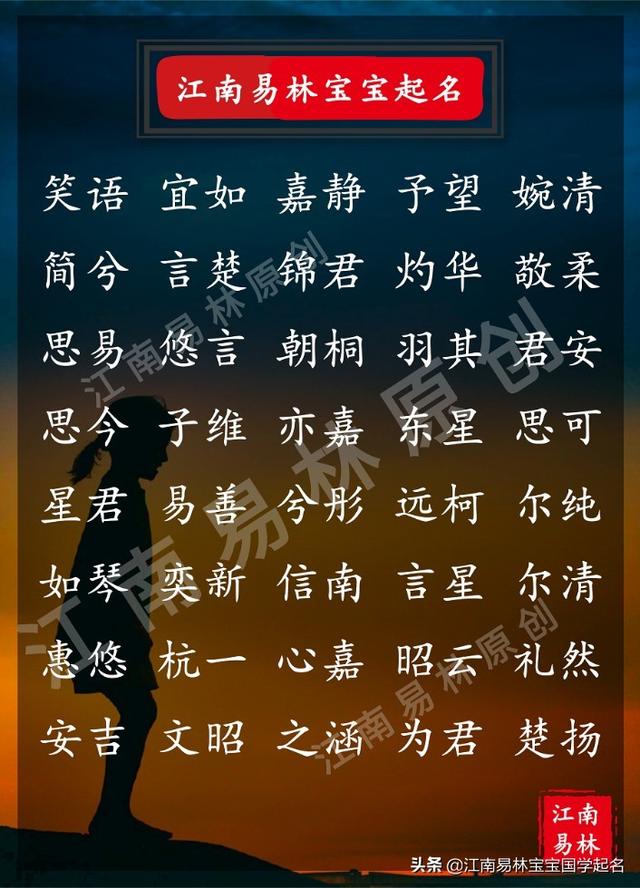 江南易林宝宝起名
笑语 宜如 嘉静 予望 婉清
简兮 言楚 锦君 灼华 敬柔
思易 悠言 朝桐 羽其 君安
思今 子维 亦嘉 东星 思可
星君 易善 兮彤 远柯 尔纯
如琴 奕新 信南 言星 尔清
惠悠 杭一 心嘉 昭云 礼然
安吉 文昭 之涵 为君 楚扬
江南易林原创
江南易林原创
江南易林原创
江南
易林
头条 @江南易林宝宝国学起名